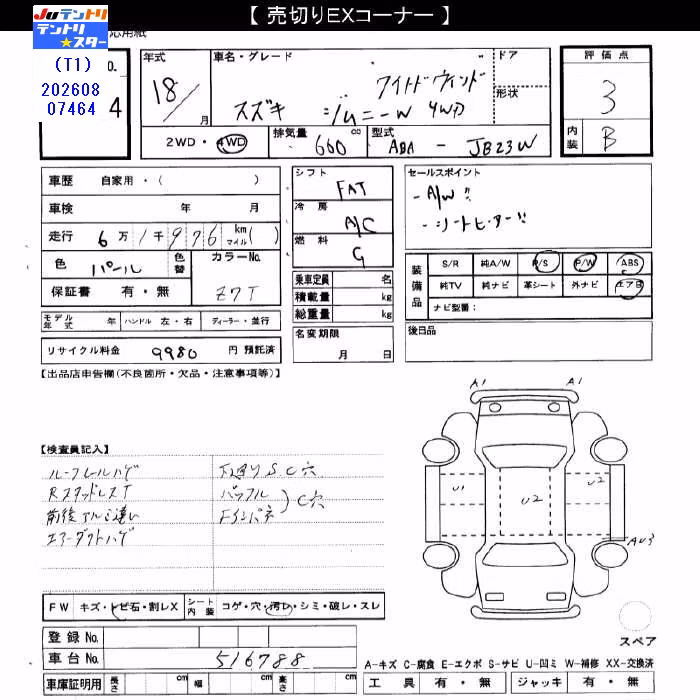 【 売切りEXコーナー 】
JUテントリ
テントリ
★スター
(T1)
202608
07464
4
年式
18/
月
車名・グレード
ワイルドウィンド
スズキ ジムニーW 4WD
ドア
形状
評価点
3
内装
B
2WD・4WD
排気量
660
cc
型式
ABA - JB23W
車歴 自家用・( )
車検 年 月
走行 6万1千976 km マイル( )
色 パール
色替
カラーNo.
Z7T
保証書 有・無
モデル年式 年 ハンドル 左・右 ディーラー・並行
リサイクル料金 9980 円 預託済
シフト
FAT
冷房
A/C
燃料
G
乗車定員 名
積載量 kg
総重量 kg
名変期限
月 日
セールスポイント
- A/W !!
- シートヒーター!!
装備品
S/R 純A/W P/S P/W ABS
純TV 純ナビ 革シート 外ナビ エアB
ナビ型番:
後日品
【出品店申告欄(不良箇所・欠品・注意事項等)】
A1 A1
【検査員記入】
ルーフレールハゲ 下廻りS.C穴
RスタッドレスT マフフル
前後アルミ違い Fインパネ
C穴
エアーダクトハゲ
U1 U2 U2
AU3
FW キズ・ヒビ石・割レX シート内装 コゲ・穴・汚レ・シミ・破レ・スレ
登録No.
車台No. 516788
車庫証明用 長さ cm 幅 cm 高さ cm
スペア
A-キズ C-腐食 E-エクボ S-サビ U-凹ミ W-補修 XX-交換済
工具 有・無 ジャッキ 有・無